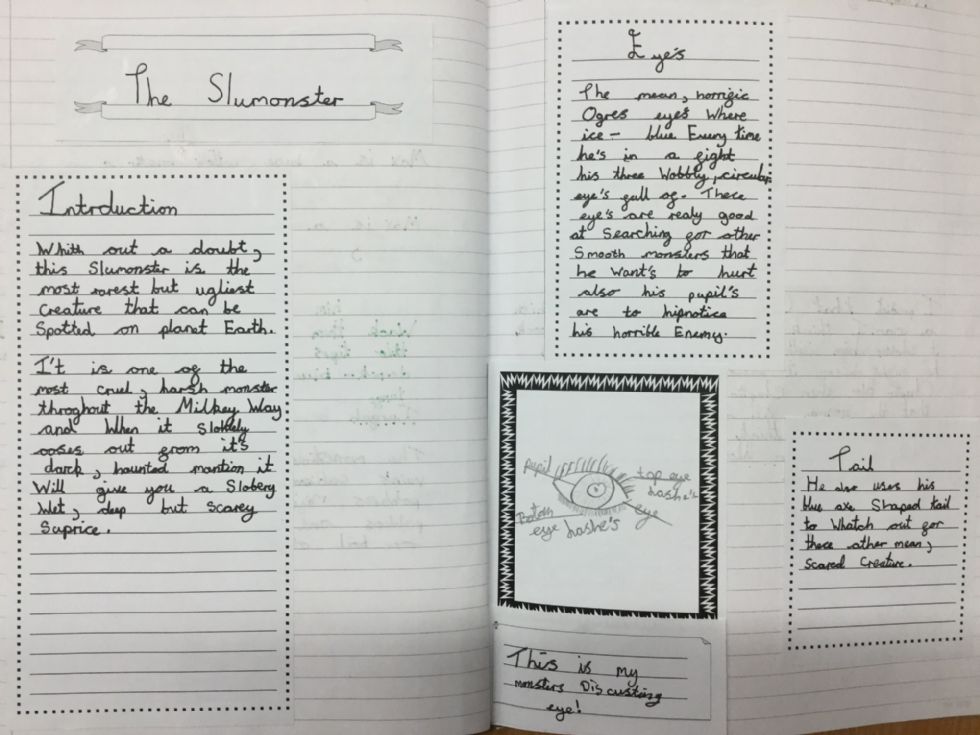 The Slumonster
Intrduction
Whith out a doubt,
this Slumonster is the
most rarest but ugliest
Creature that can be
Spotted on planet Earth.
I't is one of the
most cruel, harsh monster
throghout the Milkey Way
and When it Slokely
ooses out from it's
darck, haunted mantion it
Will give you a Slobery
Wet, deep but Scarey
Suprice.
Eye's
The mean, horrific
Ogres eye's Where
ice - blue Every time
he's in a fight
his three Wobbly, circular
eye's fall of. These
eye's are realy good
at Searching for other
Smooth monsters that
he Want's to hurt
also his pupil's
are to hipnotice
his horrible Enemy.
pupil
top eye
hashe's
Bottom
eye hashe's
eye
This is my
monsters Discusting
eye!
Tail
He also uses his
blue axe Shaped tail
to Whatch out for
these other mean,
Scared Creature.